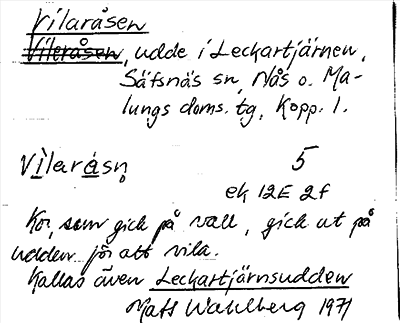 Vilaråsen
Vileråsen, udde i Leckartjärnen,
Säfsnäs sn, Nås o. Ma-
lungs doms. tg, Kopp. l.
Vìlaràsn̥ 5
ek 12E 2f
Kor, som gick på vall, gick ut på
udden för att vila.
Kallas även Leckartjärnsudden
Mats Wahlberg 1971